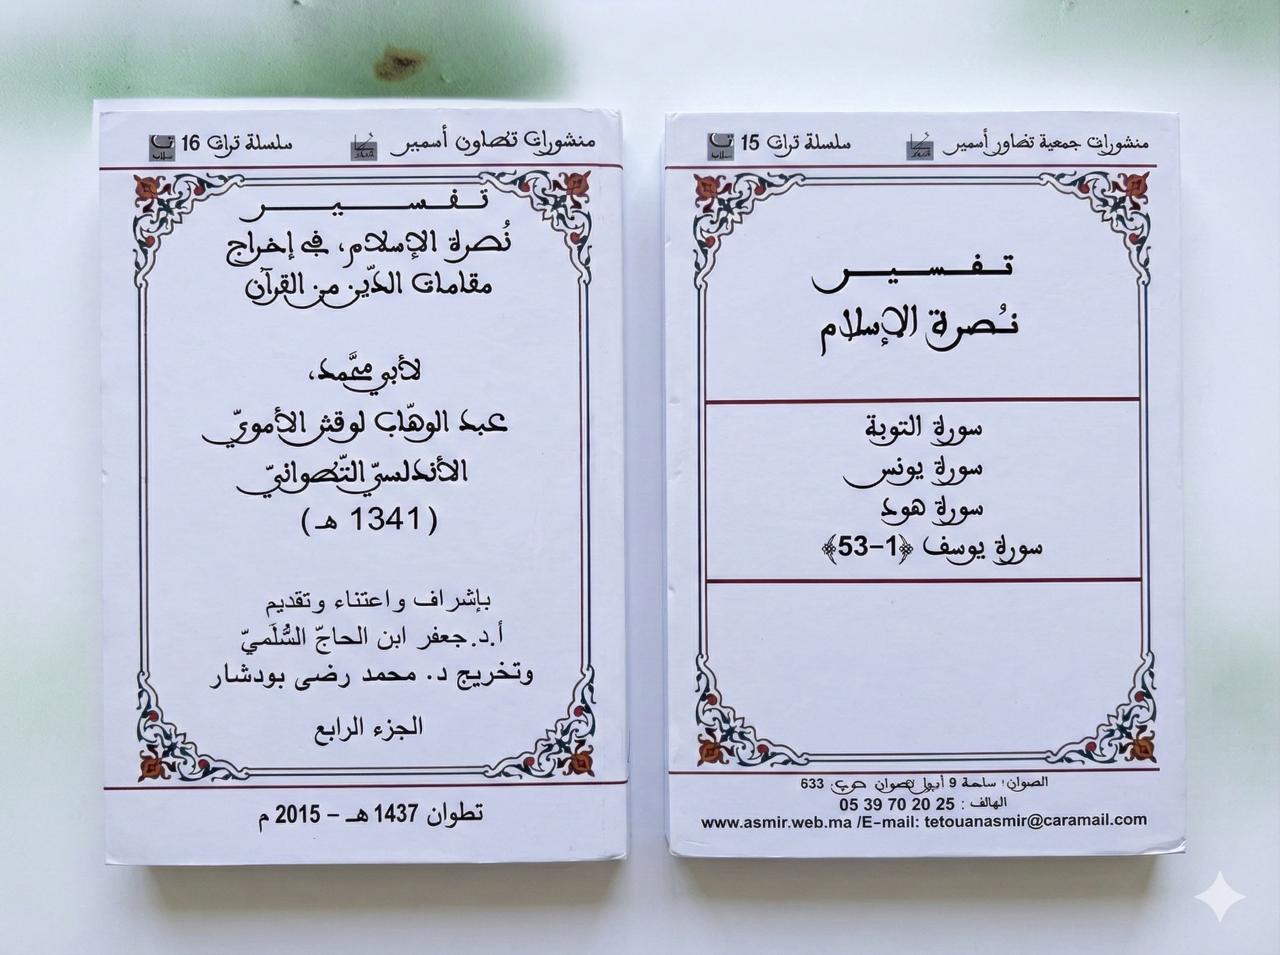 منشورات تطاون أسمير
سلسلة تراث 16
تفسير
نُصرة الإسلام، في إخراج
مقامات الدّين من القرآن
لأبي محمد،
عبد الوهّاب لوقش الأمويّ
الأندلسيّ التّطوانيّ
(1341 هـ)
بإشراف واعتناء وتقديم
أ.د.جعفر ابن الحاجّ السُّلَميّ
وتخريج د. محمد رضى بودشار
الجزء الرابع
تطوان 1437 هـ - 2015 م
منشورات جمعية تضاور أسمير
سلسلة تراث 15
تفسير
نُصرة الإسلام
سورة التوبة
سورة يونس
سورة هود
سورة يوسف ﴿1-53﴾
الصوان: ساحة 9 أبول تصوان 633
الهالف : 05 39 70 20 25
www.asmir.web.ma /E-mail: tetouanasmir@caramail.com